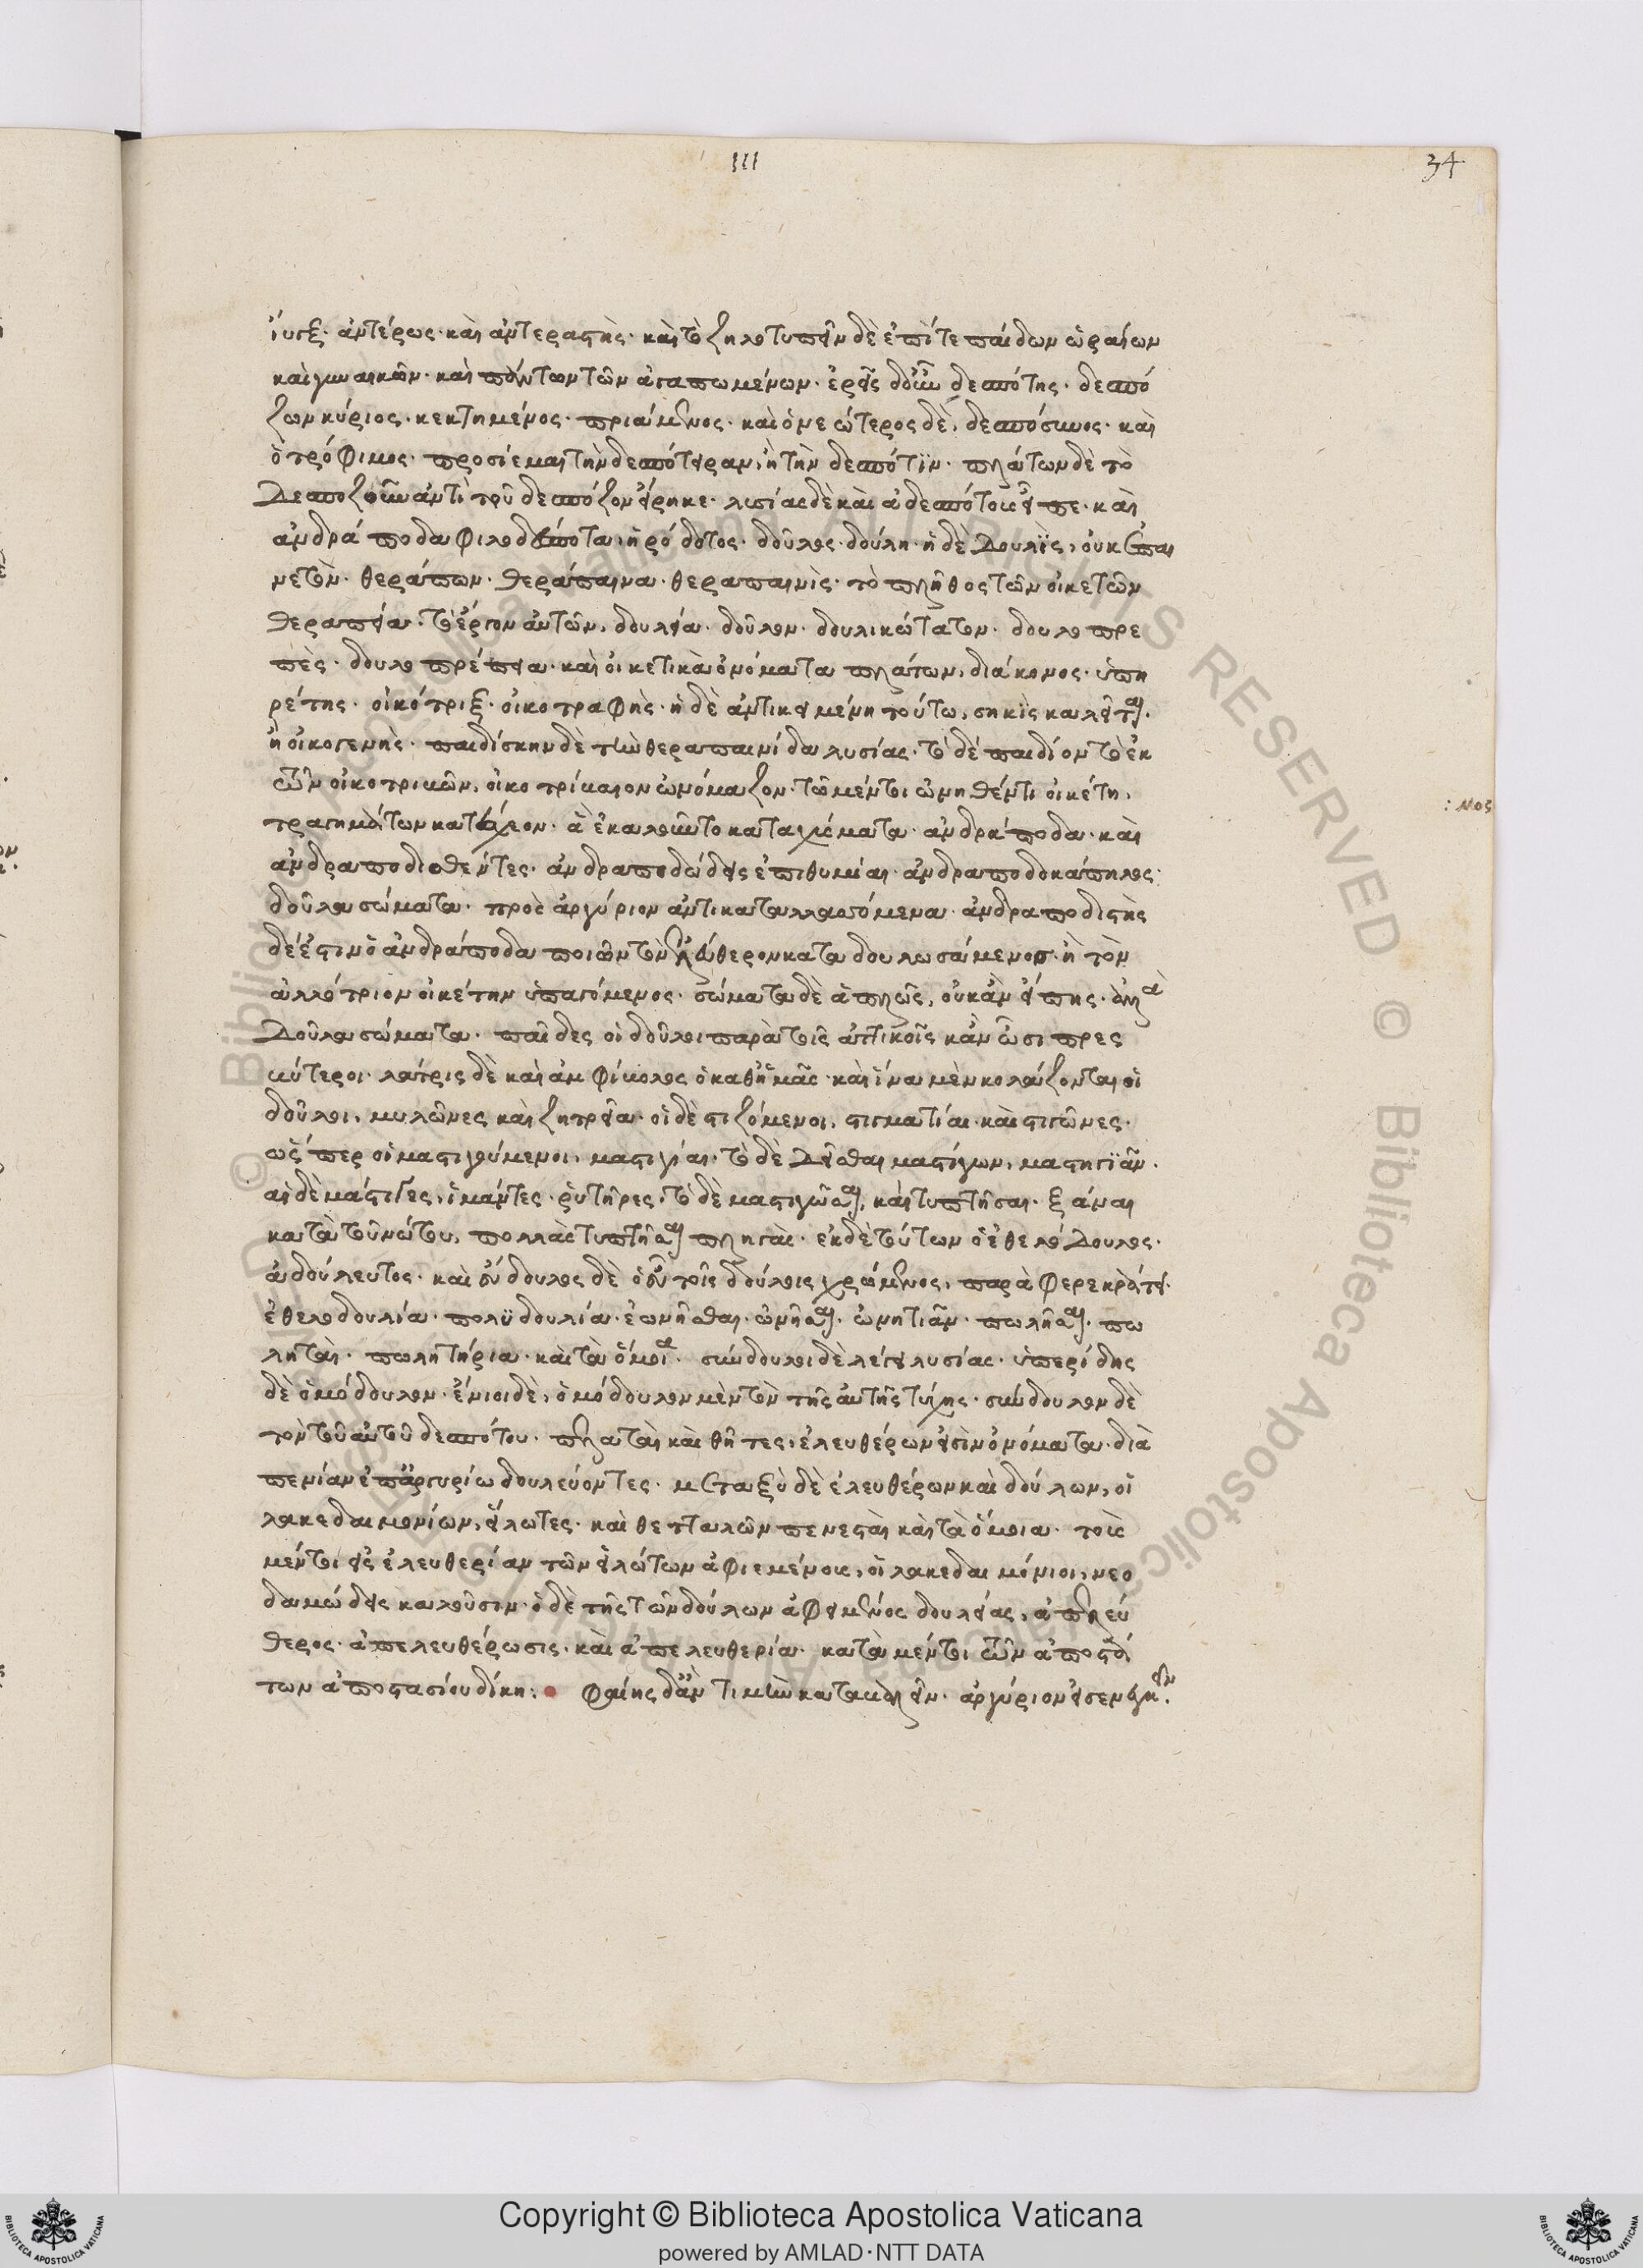 III
34
ἴυγξ· ἀντέρως· καὶ ἀντεραστὴς· καὶ τὸ ζηλοτυπεῖν δὲ ἐπί τε παίδων ὡραίων
καὶ γυναικῶν· καὶ πάντων τῶν ἀγαπωμένων· ἐρεῖς δεσπότης· δεσπό
ζων κύριος· κεκτημένος· πριάμενος· καὶ ὁ νεώτερος δὲ, δεσπόσυνος· καὶ
ὁ τρόφιμος· προσίεμαι τὴν δεσπότειραν, ἢ τὴν δεσπότιν· πλάτων δὲ τὸ
Δεσποζοῦν ἀντὶ τοῦ δεσπόζον εἴρηκε· λυσίας δὲ καὶ ἀδεσπότους εἶπε· καὶ
ἀνδράποδα φιλοδέσποτα, ἡρόδοτος· δοῦλος· δούλη· ἡ δὲ Δουλὶς, οὐκ ἐπαι
νετὸν· θεράπων· θεράπαινα· θεραπαινὶς· τὸ πλῆθος τῶν οἰκετῶν
θεραπεία· τὸ ἔργον αὐτῶν, δουλεία· δοῦλον· δουλικώτατον· δουλοπρε
πὲς· δουλοπρέπεια· καὶ οἰκετικὰ ὀνόματα πλάτων, διάκονος· ὑπη
ρέτης· οἰκότριξ· οἰκοτραφὴς· ἡ δὲ ἀντικειμένη τούτω, σηκὶς καλεῖται·
ἢ οἰκογενὴς· παιδίσκην δὲ τὴν θεραπαινίδα λυσίας· τὸ δὲ παιδίον τὸ ἐκ
τῶν οἰκοτρικῶν, οἰκοτρίκαιον ὠνόμαζον· τῶ μέντοι ὠνηθέντι οἰκέτη,
τραγημάτων κατέχεον· ἃ ἐκαλοῦντο καταχύσματα· ἀνδράποδα· καὶ
ἀνδραποδισθέντες· ἀνδραποδώδεις ἐπιθυμίαι· ἀνδραποδοκάπηλος·
δοῦλα σώματα· πρὸς ἀργύριον ἀντικαταλλασσόμενα· ἀνδραποδιστὴς
δέ ἐστιν ὁ ἀνδράποδα ποιῶν τὸν ἐλεύθερον καταδουλωσάμενος· ἢ τὸν
ἀλλότριον οἰκέτην ὑπαγόμενος· σώματα δὲ ἁπλῶς, οὐκ ἂν εἴπης· ἀλλὰ
Δοῦλα σώματα· παῖδες οἱ δοῦλοι παρὰ τοῖς ἀττικοῖς κἂν ὦσι πρεσ
βύτεροι· λάτρις δὲ καὶ ἀμφίπολος ὁ καθ' ἡμᾶς· καὶ ἵνα μὲν κολάζονται οἱ
δοῦλοι, μυλῶνες καὶ ζητρεῖα· οἱ δὲ στιζόμενοι, στιγματίαι· καὶ στιγῶνες·
ὥσπερ οἱ μαστιγούμενοι, μαστιγίαι· τὸ δὲ Δεῖσθαι μαστίγων, μαστιγιᾶν·
αἱ δὲ μάστιγες, ἱμάντες· ῥυτῆρες· τὸ δὲ μαστιγῶσαι, καὶ τυπτῆσαι· ξᾶναι
κατὰ τοῦ νώτου, πολλὰς τυπτῆσαι πληγὰς· ἐκ δὲ τούτων ὁ ἐθελόδουλος·
ἀδούλευτος· καὶ σύνδουλος δὲ ὁ σὺν τοῖς δούλοις χρώμενος, παρὰ φερεκράτει·
ἐθελοδουλία· πολυδουλία· ἐωνῆσθαι· ὠνῆσαι· ὠνητιᾶν· πωλῆσαι· πω
ληταὶ· πωλητήρια· καὶ τὰ ὅμοια· σύνδουλοι δὲ λέγει λυσίας· ὑπερίδης
δὲ ὁμόδουλον· ἔνιοι δὲ, ὁμόδουλον μὲν τὸν τῆς αὐτῆς τύχης· σύνδουλον δὲ
τὸν τοῦ αὐτοῦ δεσπότου· πελάται καὶ θῆτες, ἐλευθέρων εἰσὶν ὀνόματα· διὰ
πενίαν ἐπ' ἀργυρίω δουλεύοντες· μεταξὺ δὲ ἐλευθέρων καὶ δούλων, οἱ
λακεδαιμονίων, εἵλωτες· καὶ θετταλῶν πενεσταὶ καὶ τὰ ὅμοια· τοὺς
μέντοι εἰς ἐλευθερίαν τῶν εἱλώτων ἀφιεμένους, οἱ λακεδαιμόνιοι, νεο
δαμώδεις καλοῦσιν· ὁ δὲ τῆς τῶν δούλων ἀφειμένος δουλείας, ἀπελεύ
θερος· ἀπελευθέρωσις· καὶ ἀπελευθερία· κατὰ μέντοι τῶν ἀποστά
των ἀποστασίου δίκη: φαίης δ' ἂν τιμὴν καταβαλεῖν· ἀργύριον εἰσενεγκεῖν·
: νος
Copyright © Biblioteca Apostolica Vaticana
powered by AMLAD·NTT DATA